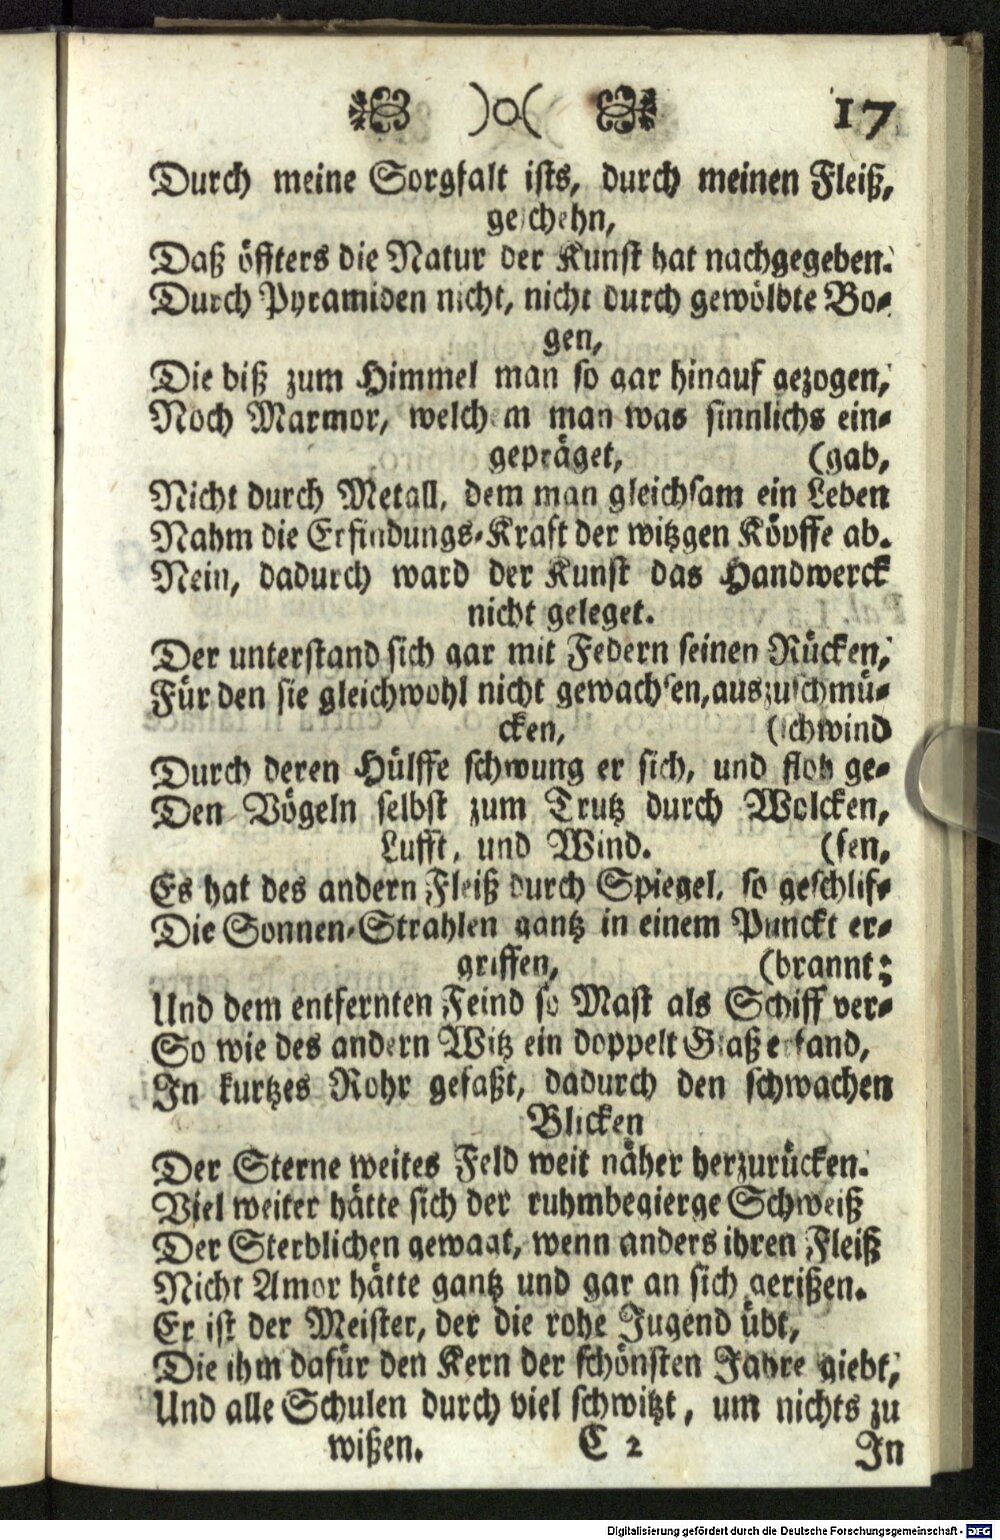 )o( 17
Durch meine Sorgfalt ists, durch meinen Fleiß,
geschehn,
Daß öffters die Natur der Kunst hat nachgegeben.
Durch Pyramiden nicht, nicht durch gewölbte Bo-
gen,
Die biß zum Himmel man so gar hinauf gezogen,
Noch Marmor, welchem man was sinnlichs ein-
gepräget, (gab,
Nicht durch Metall, dem man gleichsam ein Leben
Nahm die Erfindungs-Kraft der witzgen Köpffe ab.
Nein, dadurch ward der Kunst das Handwerck
nicht geleget.
Der unterstand sich gar mit Federn seinen Rücken,
Für den sie gleichwohl nicht gewachsen, auszuschmü-
cken, (schwind
Durch deren Hülffe schwung er sich, und floh ge-
Den Vögeln selbst zum Trutz durch Wolcken,
Lufft, und Wind. (fen,
Es hat des andern Fleiß durch Spiegel, so geschlif-
Die Sonnen-Strahlen gantz in einem Punckt er-
griffen, (brannt;
Und dem entfernten Feind so Mast als Schiff ver-
So wie des andern Witz ein doppelt Glaß erfand,
In kurtzes Rohr gefaßt, dadurch den schwachen
Blicken
Der Sterne weites Feld weit näher herzurücken.
Viel weiter hätte sich der ruhmbegierge Schweiß
Der Sterblichen gewagt, wenn anders ihren Fleiß
Nicht Amor hätte gantz und gar an sich gerißen.
Er ist der Meister, der die rohe Jugend übt,
Die ihm dafür den Kern der schönsten Jahre giebt,
Und alle Schulen durch viel schwitzt, um nichts zu
wißen. C 2 In
Digitalisierung gefördert durch die Deutsche Forschungsgemeinschaft - DFG